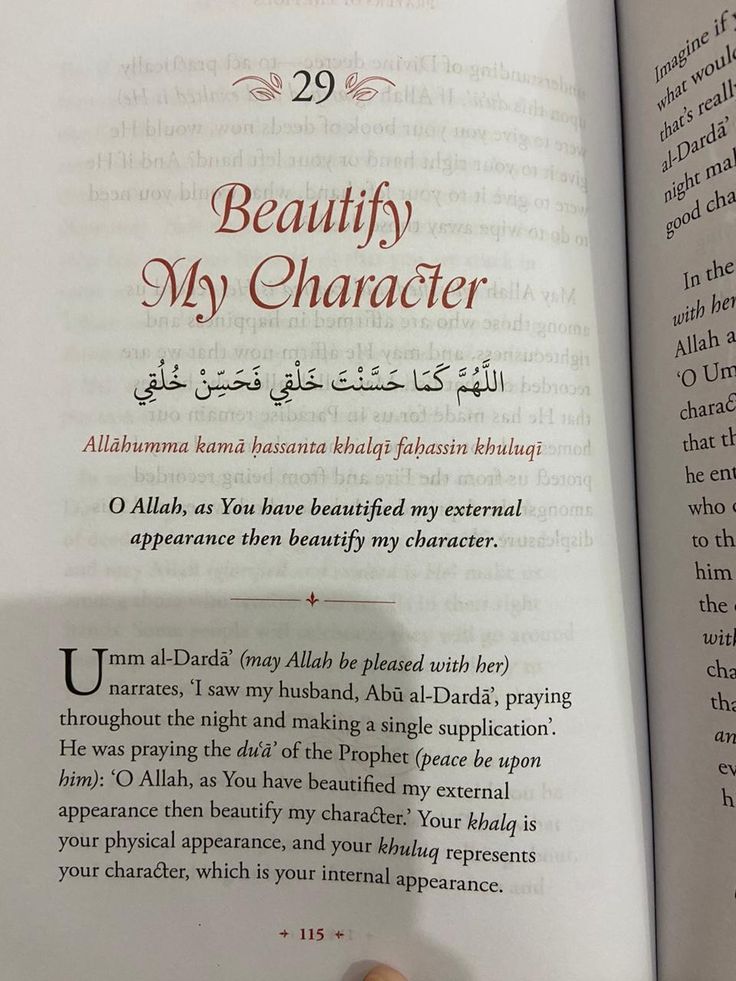 29
Beautify
My Character
اللَّهُمَّ كَمَا حَسَّنْتَ خَلْقِي فَحَسِّنْ خُلُقِي
Allāhumma kamā ḥassanta khalqī faḥassin khuluqī
O Allah, as You have beautified my external
appearance then beautify my character.
Umm al-Dardā’ (may Allah be pleased with her)
narrates, ‘I saw my husband, Abū al-Dardā’, praying
throughout the night and making a single supplication’.
He was praying the du‘ā’ of the Prophet (peace be upon
him): ‘O Allah, as You have beautified my external
appearance then beautify my character.’ Your khalq is
your physical appearance, and your khuluq represents
your character, which is your internal appearance.
115
Imagine if
what would
that’s really
al-Dardā’
night
good
In the
with her
Allah
‘O Um
that
he
who
to
him
the